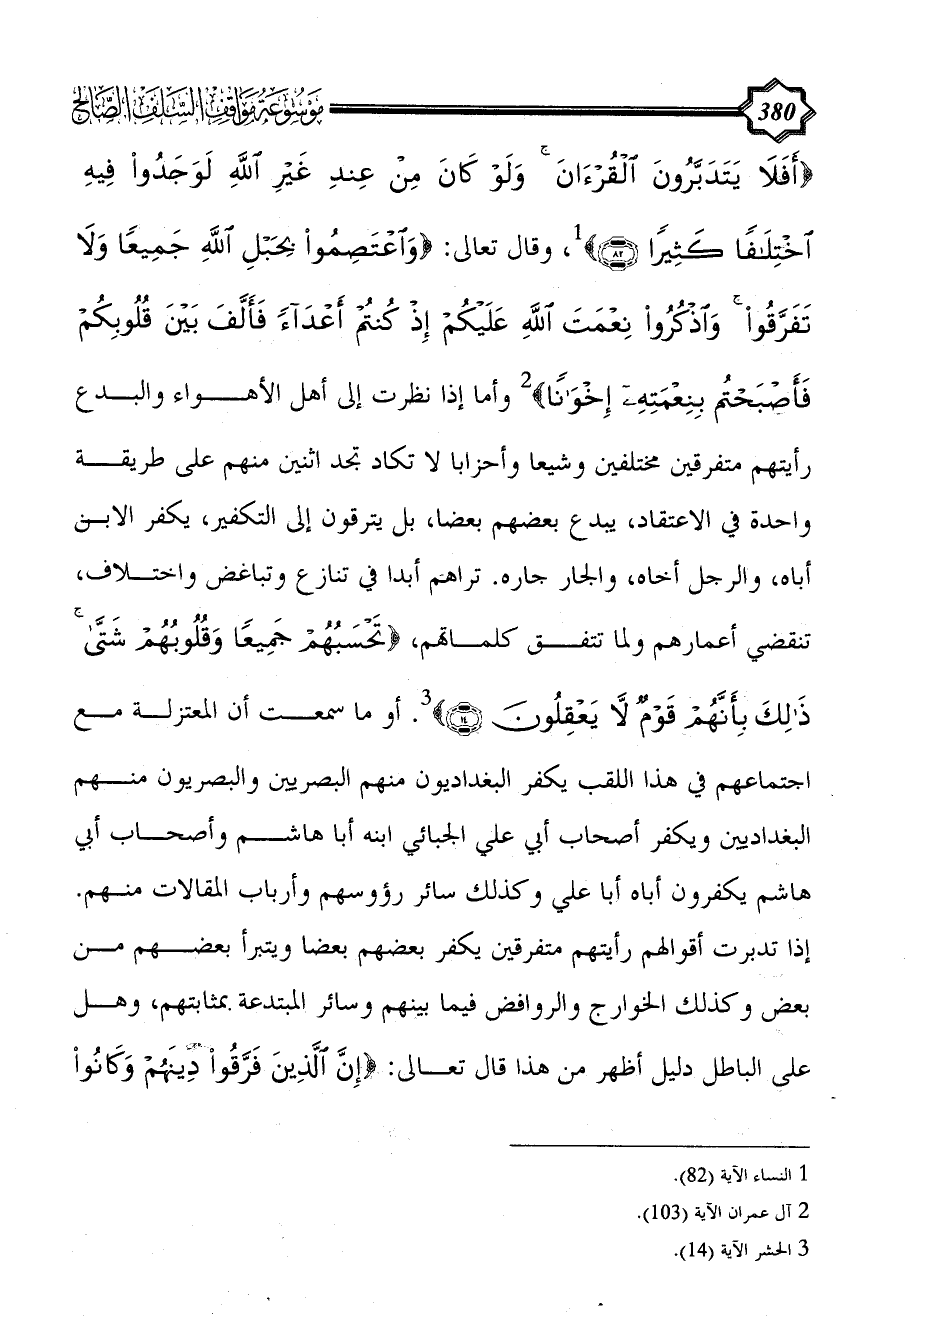 380 موسوعة مواقف السلف الصالح
﴿أَفَلَا يَتَدَبَّرُونَ ٱلْقُرْءَانَ ۚ وَلَوْ كَانَ مِنْ عِندِ غَيْرِ ٱللَّهِ لَوَجَدُوا۟ فِيهِ
ٱخْتِلَـٰفًا كَثِيرًا ﴿٨٢﴾﴾1، وقال تعالى: ﴿وَٱعْتَصِمُوا۟ بِحَبْلِ ٱللَّهِ جَمِيعًا وَلَا
تَفَرَّقُوا۟ ۚ وَٱذْكُرُوا۟ نِعْمَتَ ٱللَّهِ عَلَيْكُمْ إِذْ كُنتُمْ أَعْدَآءً فَأَلَّفَ بَيْنَ قُلُوبِكُمْ
فَأَصْبَحْتُم بِنِعْمَتِهِۦٓ إِخْوَٰنًا﴾2 وأما إذا نظرت إلى أهل الأهـــواء والبـــدع
رأيتهم متفرقين مختلفين وشيعا وأحزابا لا تكاد تجد اثنين منهم على طريقـــة
واحدة في الاعتقاد، يبدع بعضهم بعضا، بل يترقون إلى التكفير، يكفر الابـن
أباه، والرجل أخاه، والجار جاره. تراهم أبدا في تنازع وتباغض واختـلاف،
تنقضي أعمارهم ولما تتفــق كلمـاتهم، ﴿تَحْسَبُهُمْ جَمِيعًا وَقُلُوبُهُمْ شَتَّىٰ ۚ
ذَٰلِكَ بِأَنَّهُمْ قَوْمٌ لَّا يَعْقِلُونَ ﴿١٤﴾﴾3. أو ما سمعـت أن المعتزلـة مـع
اجتماعهم في هذا اللقب يكفر البغداديون منهم البصريين والبصريون منـهم
البغداديين ويكفر أصحاب أبي علي الجبائي ابنه أبا هاشـم وأصحـاب أبي
هاشم يكفرون أباه أبا علي وكذلك سائر رؤوسهم وأرباب المقالات منـهم.
إذا تدبرت أقوالهم رأيتهم متفرقين يكفر بعضهم بعضا ويتبرأ بعضـهم مـن
بعض وكذلك الخوارج والروافض فيما بينهم وسائر المبتدعة بمثابتهم، وهـل
على الباطل دليل أظهر من هذا قال تعـالى: ﴿إِنَّ ٱلَّذِينَ فَرَّقُوا۟ دِينَهُمْ وَكَانُوا۟
1 النساء الآية (82).
2 آل عمران الآية (103).
3 الحشر الآية (14).